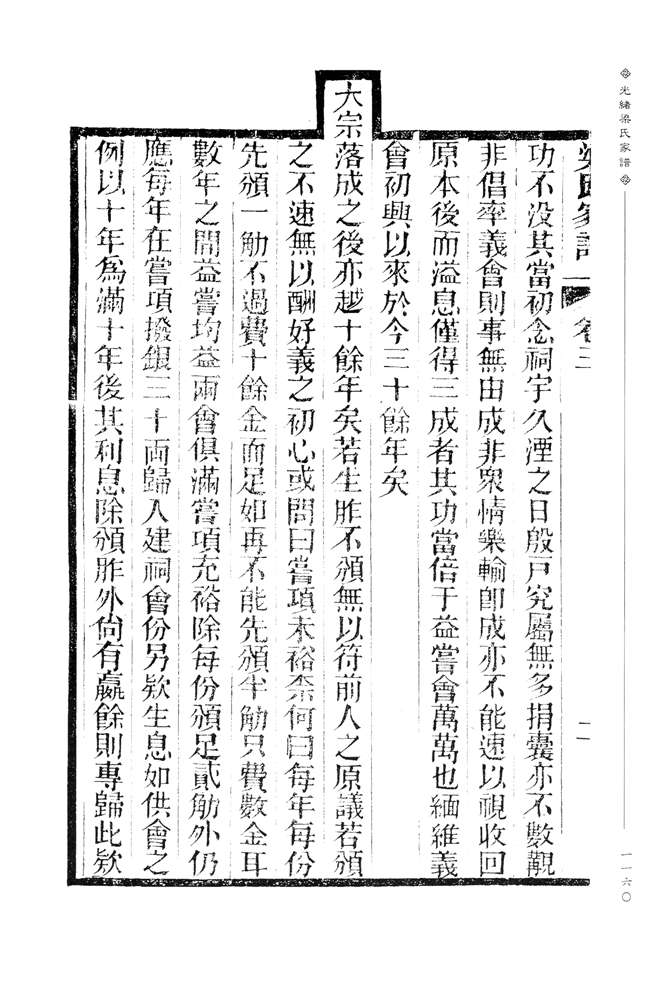 光緒梁氏家譜
一一六〇
梁氏家譜 卷三 二
功不没其當初念祠宇久湮之日殷戸究屬無多捐囊亦不數觀
非倡率義會則事無由成非衆情樂輸即成亦不能速以視收回
原本後而溢息僅得三成者其功當倍于益嘗會萬萬也緬維義
會初興以來於今三十餘年矣
大宗落成之後亦越十餘年矣若生胙不頒無以符前人之原議若頒
之不速無以酬好義之初心或問曰嘗項未裕柰何曰每年每份
先頒一觔不過費十餘金而足如再不能先頒半觔只費數金耳
數年之間益嘗均益兩會俱滿嘗項充裕除每份頒足貳觔外仍
應每年在嘗項撥銀三十両歸入建祠會份另欵生息如供會之
例以十年爲滿十年後其利息除頒胙外尙有嬴餘則專歸此欵